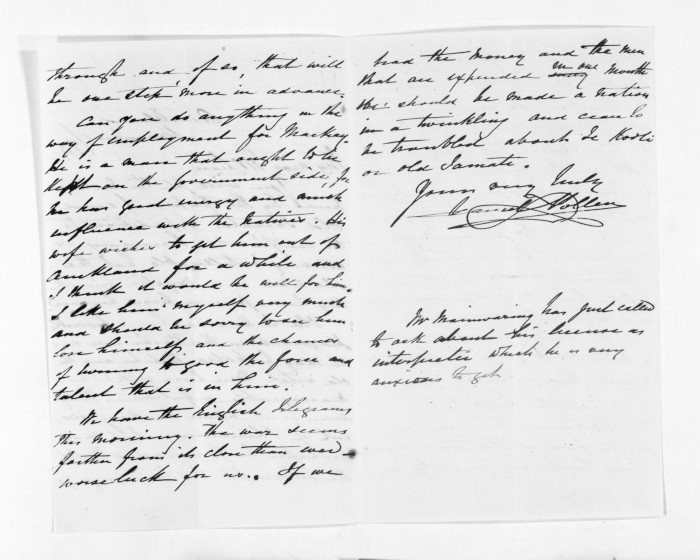 through and if so, that will
be one step more in advance.
Can you do anything in the
way of employment for Mackay
He is a man that ought to be
kept on the Government side, for
he has good energy and much
influence with the Natives. His
wife wishes to get him out of
Auckland for a while and
I think it would be well for him.
I like him myself very much
and should be sorry to see him
lose himself and the chances
of turning to good the force and
talent that is in him.
We have the English Telegrams
this morning. The war seems
farther from its close than ever
worse luck for us. If we
had the money and the men
that are expended in one month
we should be made a nation
in a twinkling and cease to
be troubled about Te Kooti
or old Tamati.
Yours very truly
Daniel Pollen
Mr Mainwaring has just called
to ask about his license as
interpreter which he is very
anxious to get.